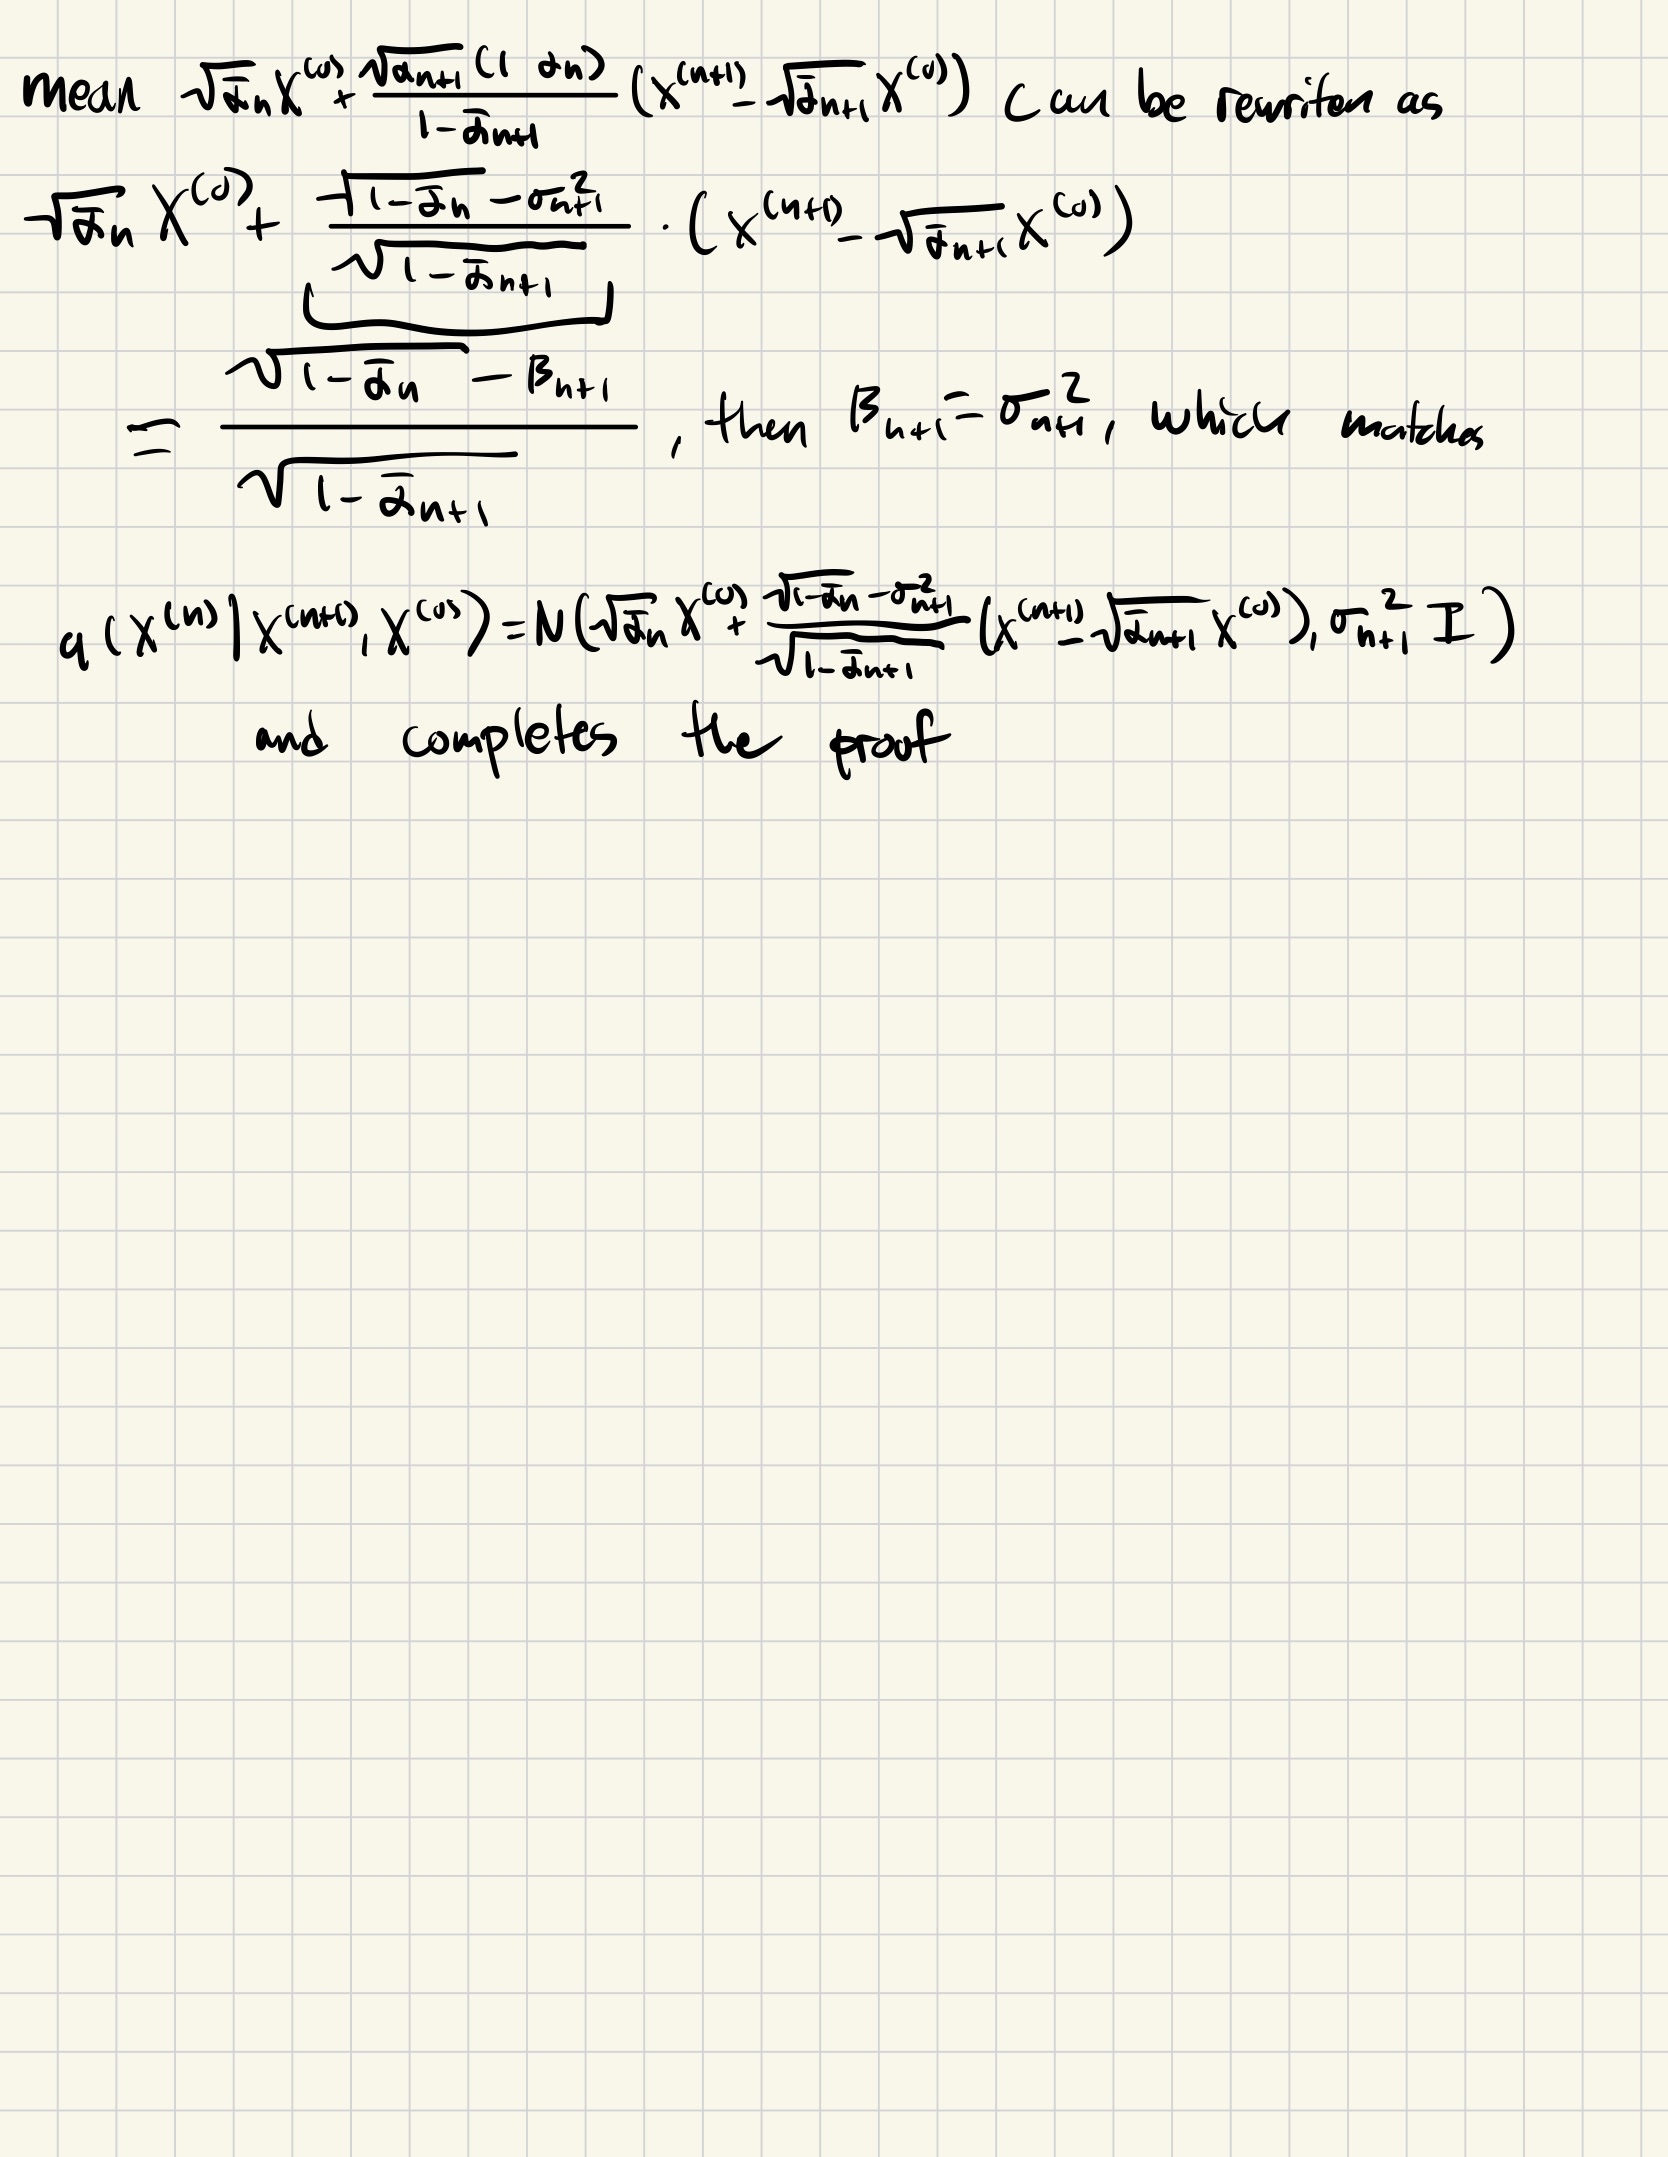 mean √ᾱₙ X⁽⁰⁾ + √αₙ₊₁ (1 αₙ) / 1-ᾱₙ₊₁ (X⁽ⁿ⁺¹⁾ - √ᾱₙ₊₁ X⁽⁰⁾) can be rewriten as
√ᾱₙ X⁽⁰⁾ + √1-ᾱₙ - σ²ₙ₊₁ / √1-ᾱₙ₊₁ · (X⁽ⁿ⁺¹⁾ - √ᾱₙ₊₁ X⁽⁰⁾)
= √1-ᾱₙ - βₙ₊₁ / √1-ᾱₙ₊₁ , then βₙ₊₁ = σ²ₙ₊₁, which matches
q(X⁽ⁿ⁾|X⁽ⁿ⁺¹⁾, X⁽⁰⁾) = N(√ᾱₙ X⁽⁰⁾ + √1-ᾱₙ - σ²ₙ₊₁ / √1-ᾱₙ₊₁ (X⁽ⁿ⁺¹⁾ - √ᾱₙ₊₁ X⁽⁰⁾), σ²ₙ₊₁ I)
and completes the proof